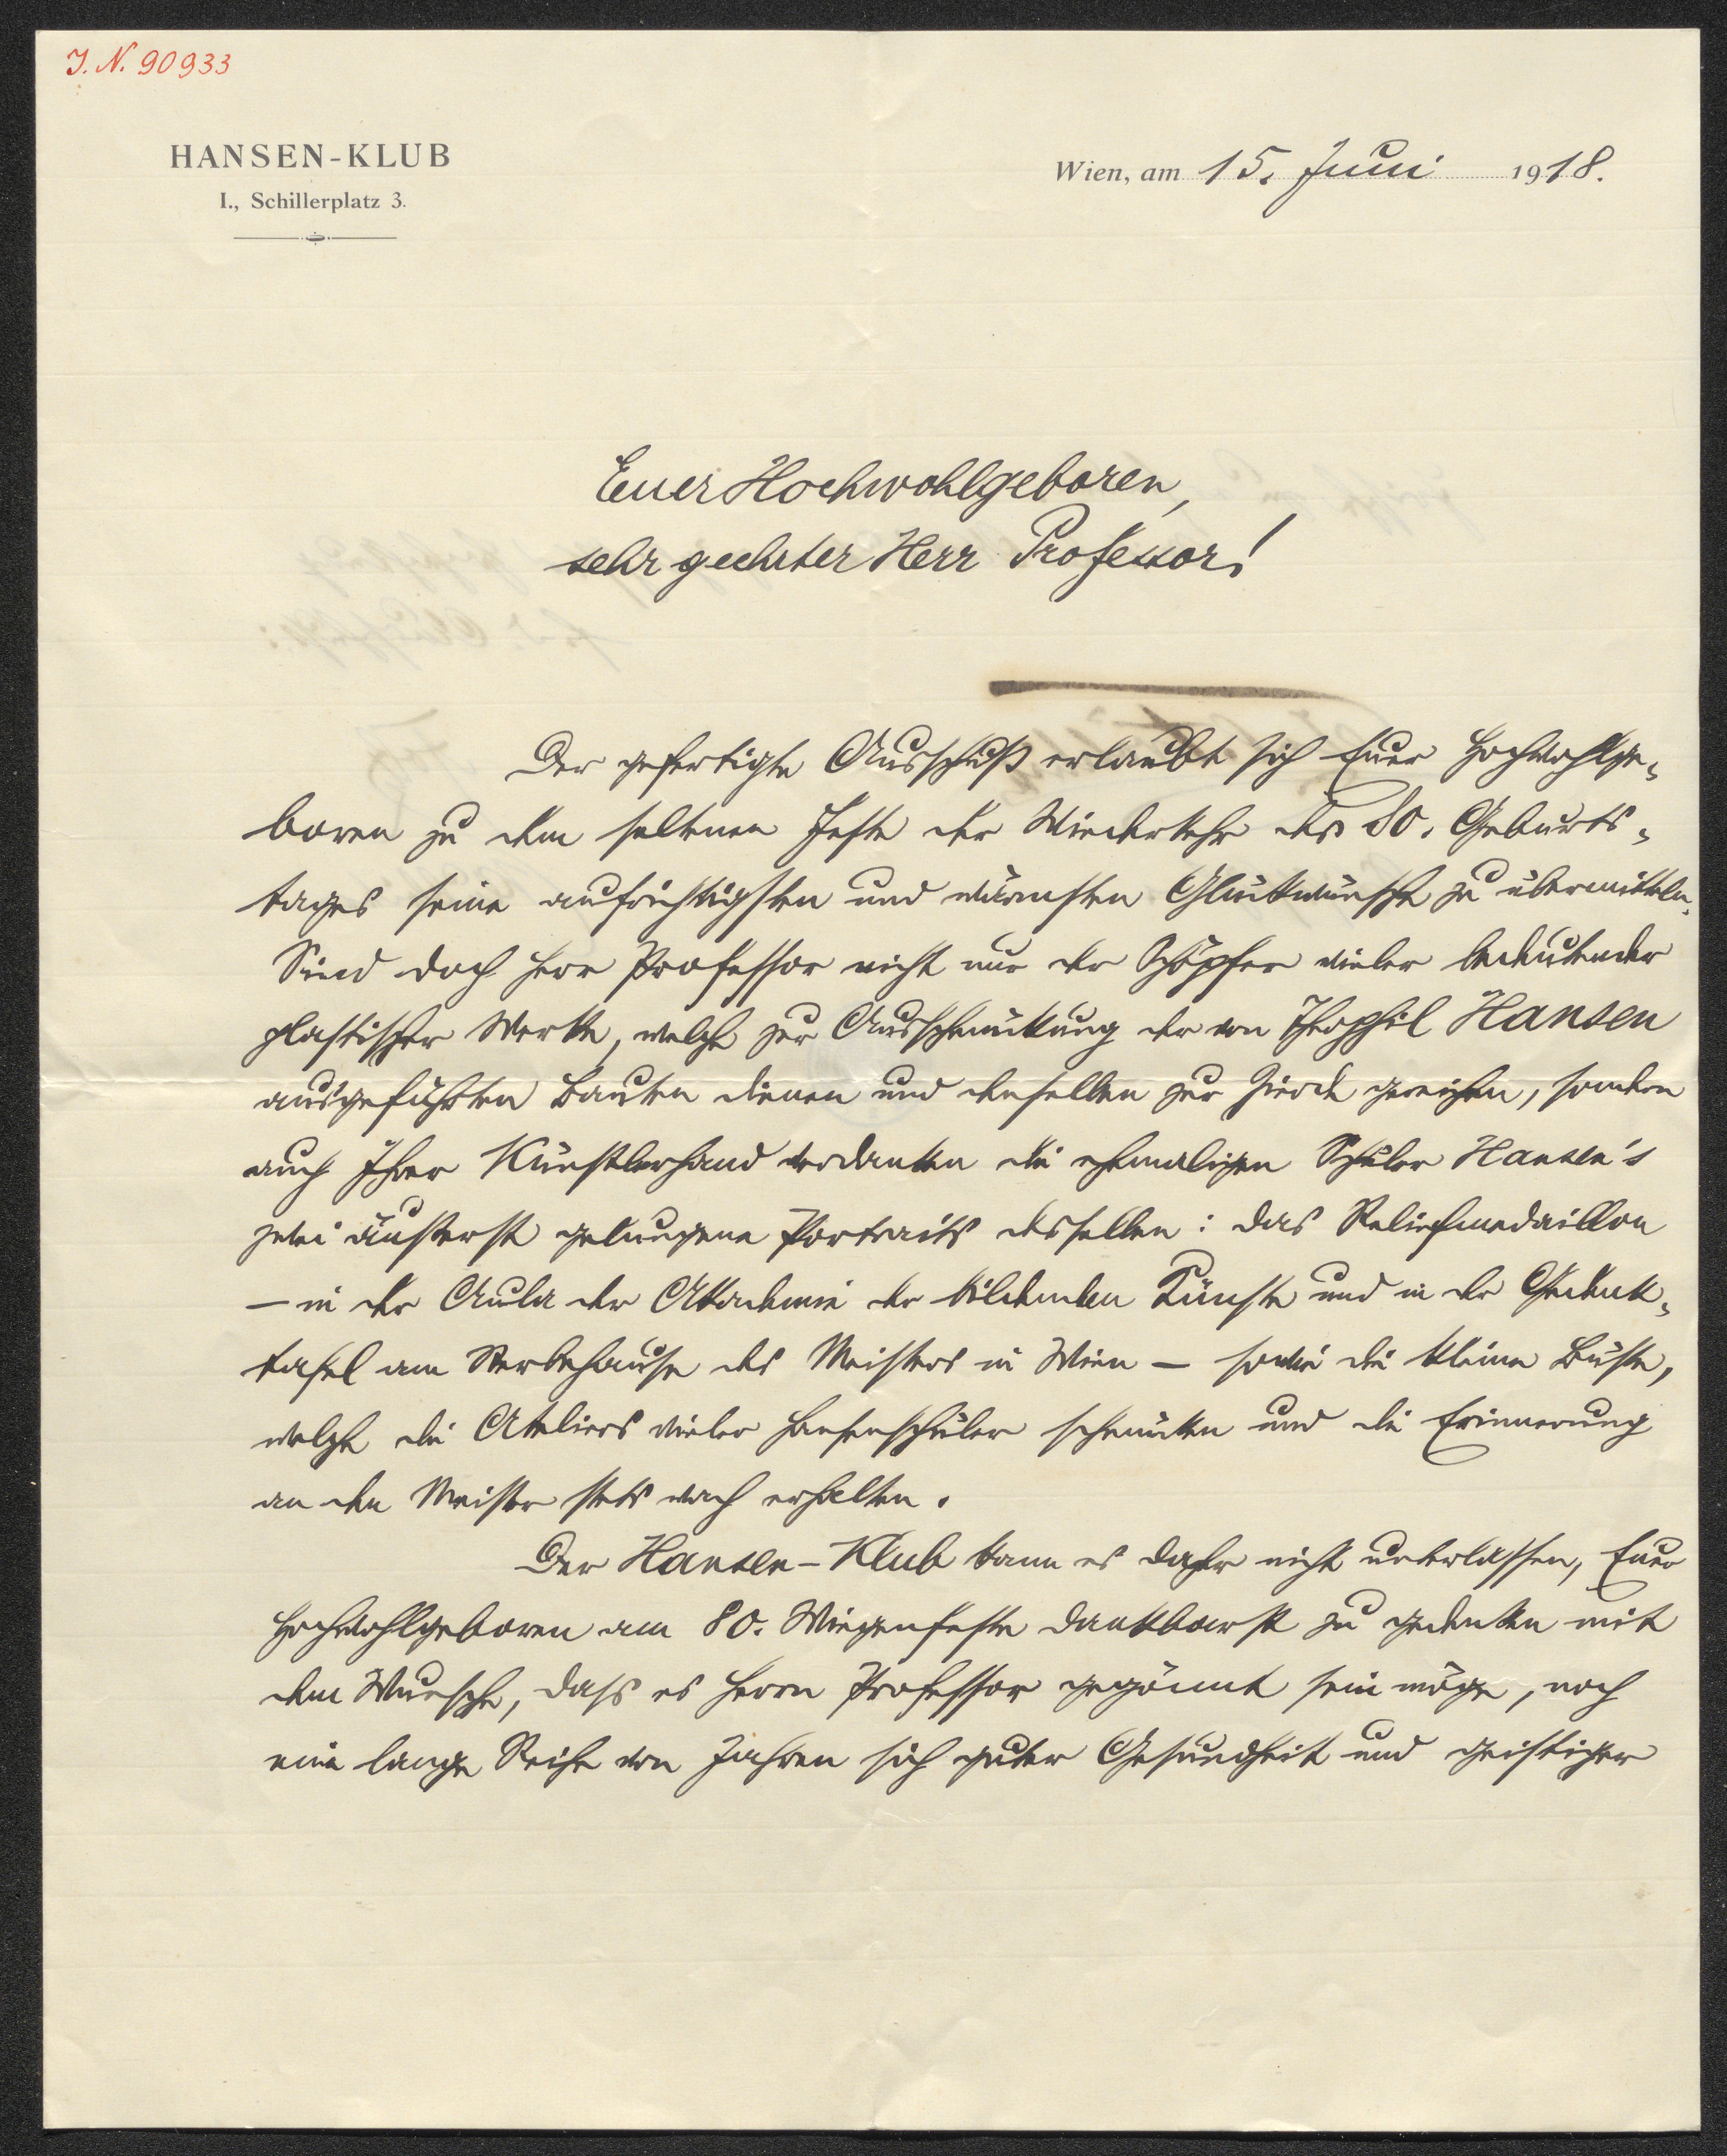 I. N. 90933
HANSEN-KLUB
I., Schillerplatz 3.
Wien, am 15. Juni 1918.
Euer Hochwohlgeboren,
sehr geehrter Herr Professor!
Der gefertigte Ausschuß erlaubt sich Euer Hochwohlge-
boren zu dem seltenen Feste der Wiederkehr des 80. Geburts-
tages seine aufrichtigsten und wärmsten Glückwünsche zu übermitteln.
Sind doch Herr Professor nicht nur der Schöpfer vieler bedeutender
plastischer Werke, welche zur Ausschmückung der von Theophil Hansen
ausgeführten Bauten dienen und denselben zur Zierde gereichen, sondern
auch Ihrer Künstlerhand verdanken die ehemaligen Schüler Hansen's
zwei äußerst gelungene Portraits desselben: das Reliefmedaillon
– in der Aula der Akademie der bildenden Künste und in der Gedenk-
tafel am Sterbehause des Meisters in Wien – sowie die kleine Büste,
welche die Ateliers vieler Hansenschüler schmücken und die Erinnerung
an den Meister stets wach erhalten.
Der Hansen-Klub kann es daher nicht unterlassen, Euer
Hochwohlgeboren am 80. Wiegenfeste dankbarst zu gedenken mit
dem Wunsche, dass es Herrn Professor gegönnt sein möge, noch
eine lange Reihe von Jahren sich guter Gesundheit und geistiger